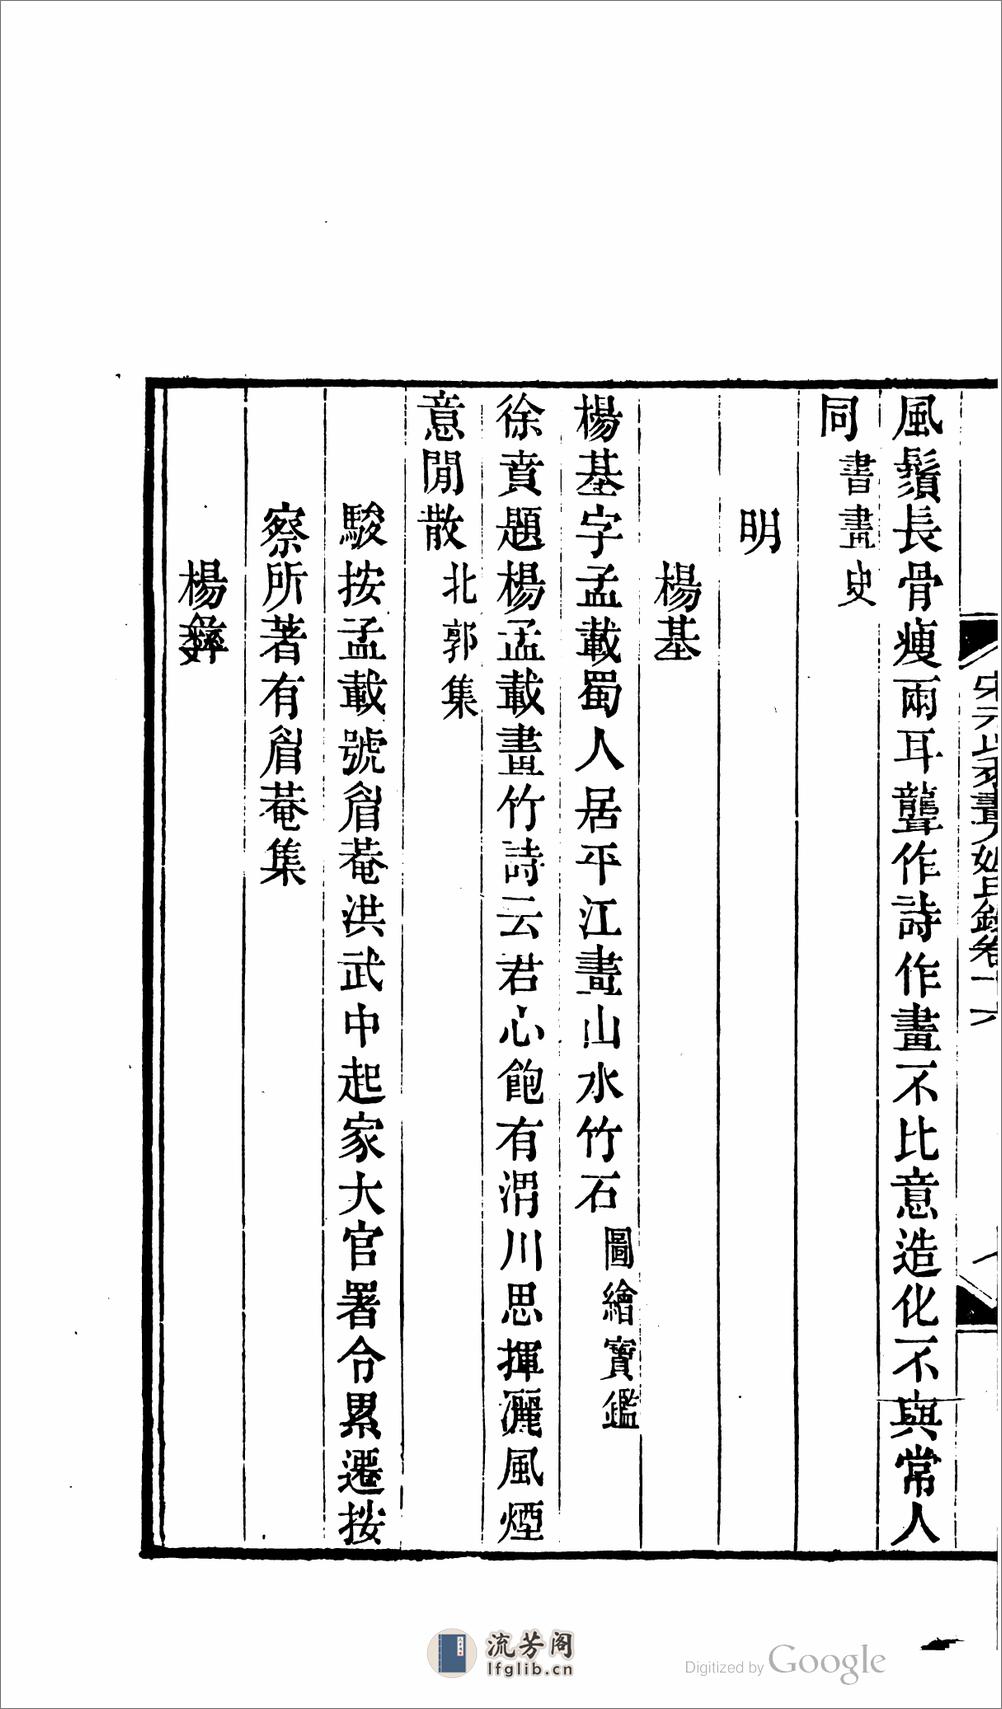 宋元以來畫人姓氏錄卷十六
風鬚長骨瘦兩耳聾作詩作畫不比意造化不與常人
同書畫史
明
楊基
楊基字孟載蜀人居平江畫山水竹石圖繪寶鑑
徐賁題楊孟載畫竹詩云君心飽有渭川思揮灑風煙
意閒散北郭集
駿按孟載號眉菴洪武中起家大官署令累遷按
察所著有眉菴集
楊彝
流芳阁
lfglib.cn
Digitized by Google